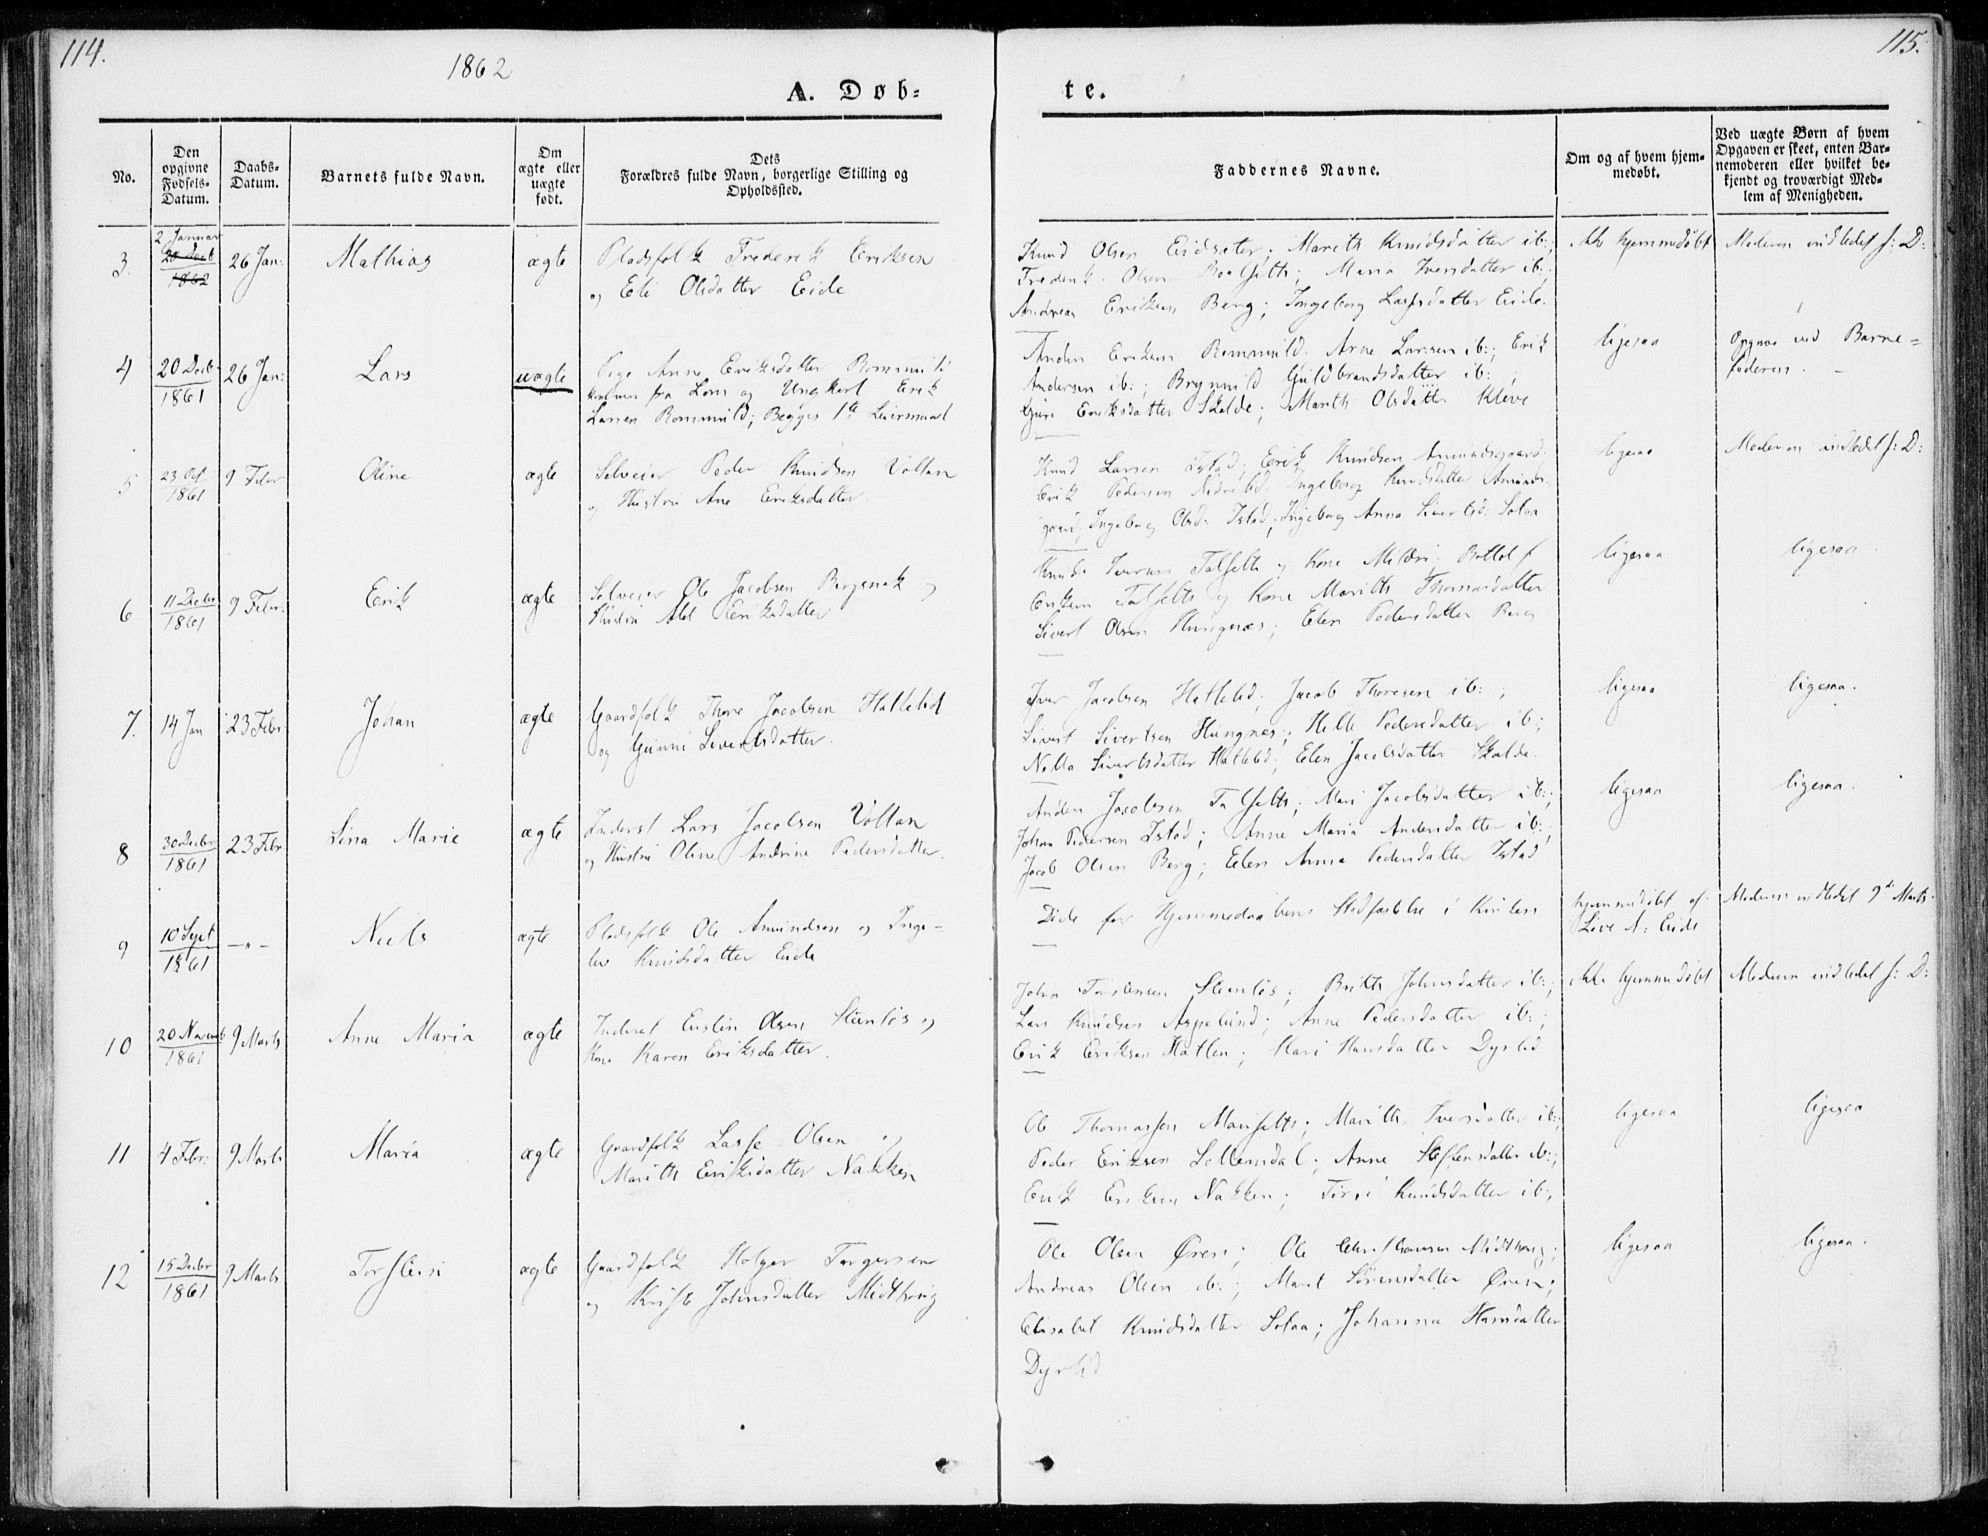 114.
1862
115.
A. Døb-
te.
No.
Den opgivne Fødsels-Datum.
Daabs-Datum.
Barnets fulde Navn.
Om ægte eller uægte født.
Dets Forældres fulde Navn, borgerlige Stilling og Opholdssted.
Faddernes Navne.
Om og af hvem hjem-medøbt.
Ved uægte Børn af hvem Opgaven er skeet, enten Bar-nemoderen eller hvilket be-kjendt og troværdigt Med-lem af Menigheden.
3.
2 Januar
1862
26 Jan:
Mathias
ægte
Pladsfolk Frederik Eriksen
og Eli Olsdatter Eide
Knud Olsen Eidsæter; Marith Knudsdatter ib:;
Frederik Olsen; Maria Iversdatter ib:
Andreas Eriksen Berg; Ingeborg Lassesdatter Eide.
ikke hjemmedøbt
Moderen indledet s: D:
4
20 Decbr
1861
26 Jan:
Lars
uægte
Pige Anne Eriksdatter
kommen fra Lom og Ungkarl Erik
Larsen Rommuld; Begges 1ste Leiermaal
Anders Eriksen Rommuld. Arne Larsen ib:; Erik
Andersen ib:; Brynnild Guldbrandsdatter ib:;
Guri Eriksdatter Skalde; Marith Olsdatter Kleve
ligesaa
Opgave ved Barne=
faderen. —
5
23 Oct
1861
9 Febr
Oline
ægte
Selveier Peder Knudsen Voltan
og Hustru Ane Eriksdatter.
Knud Larsen Istad; Erik Knudsen
Erik Pedersen; Ingeborg Knudsdatter Amunds-
gaard; Ingeborg Olsd: Istad; Ingeborg Anna Sivertsd: Solaa
ligesaa
Moderen indledet s: D:
6
11 Decbr
1861
9 Febr:
Erik
ægte
Selveier Ole Jacobsen og
Hustru Eriksdatter
Knud Iversen Talsetth og Kone; Bottolf
Eriksen Talsetth og Kone Marith Thomasdatter
Sivert Olsen Hungnæs; Elen Pedersdatter Berg
ligesaa
ligesaa.
7.
14 Jan
23 Febr
Johan
ægte
Gaardfolk Thore Jacobsen Hatlelid
og Gunni Sivertsdatter.
Iver Jacobsen Hatlelid; Jacob Thoresen ib:;
Sivert Sivertsen Hungnes; Pedersdatter ib:;
Sivertsdatter Hatlelid; Elen Jacobsdatter Skalde.
ligesaa
ligesaa.
8
30 Decbr
1861
23 Febr
Lina Marie
ægte
Inderst Lars Jacobsen Voltan
og Hustru Oline Andrine Pedersdatter.
Anders Jacobsen Talsetth; Mari Jacobsdatter ib:;
Johan Pedersen Istad; Anne Maria Andersdatter ib:;
Jacob Olsen Berg; Elen Anna Pedersdatter Istad
ligesaa
ligesaa.
9
10 Sept
1861
—"—
Niels
ægte
Pladsfolk Ole Amundsen og Inge-
Knudsdatter Eide
Døde før Hjemmedaabens Stadfæstelse i Kirken
hjemmedøbt af
Eide
Moderen indledet 9de Marts.
10
20 Novemb
1861
9 Marts
Anne Maria
ægte
Inderst Olsen Steenløs og
Kone Karen Eriksdatter.
John Torstensen Steenløs; Brith Johnsdatter ib:;
Lars Knudsen Aspelund; Anne Pedersdatter ib:;
Erik Eriksen Hatlen; Mari Hansdatter Dyrlid
ikke hjemmedøbt
Moderen indledet s: D:
11
4 Febr:
9 Marts
Maria
ægte
Gaardfolk Lasse Olsen og
Marith Eriksdatter Nakken
Ole Thomassen; Marith Iversdatter ib:;
Peder Eriksen Sollemdal; Anne Steffensdatter ib:;
Erik Eriksen Nakken; Knudsdatter ib:,
ligesaa
ligesaa
12
15 Decbr
1861
9 Marts
Torstein
ægte
Gaardfolk Holger Torgersen
og Johnsdatter Midthoug
Ole Olsen Øren; Ole Christiansen Midthoug;
Andreas Olsen ib:; Marit Sørensdatter Øren;
Elisabet Knudsdatter Solaa; Johanna Hansdatter
Dyrlid
ligesaa
ligesaa.